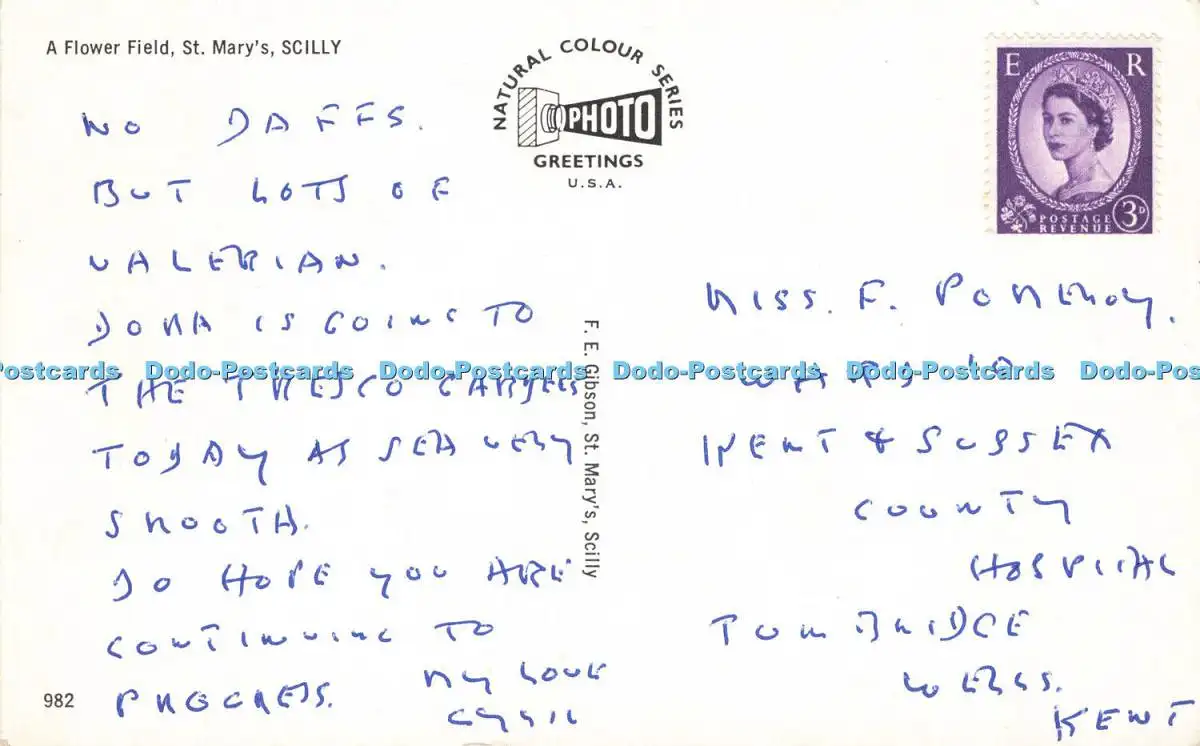 A Flower Field, St. Mary's, SCILLY
NATURAL COLOUR SERIES
PHOTO
GREETINGS
U.S.A.
E R
POSTAGE
REVENUE
3D
NO DAFFS.
BUT LOTS OF
VALERIAN.
DORA IS GOING TO
THE TRESCO GARDENS
TODAY AS SEA VERY
SMOOTH.
DO HOPE YOU ARE
CONTINUING TO
PROGRESS.
MY LOVE
CYRIL
982
F. E. Gibson, St. Mary's, Scilly
MISS. F. POMEROY.
WARD
KENT & SUSSEX
COUNTY
HOSPITAL
TUNBRIDGE
WELLS.
KENT
Dodo-Postcards Dodo-Postcards Dodo-Postcards Dodo-Postcards